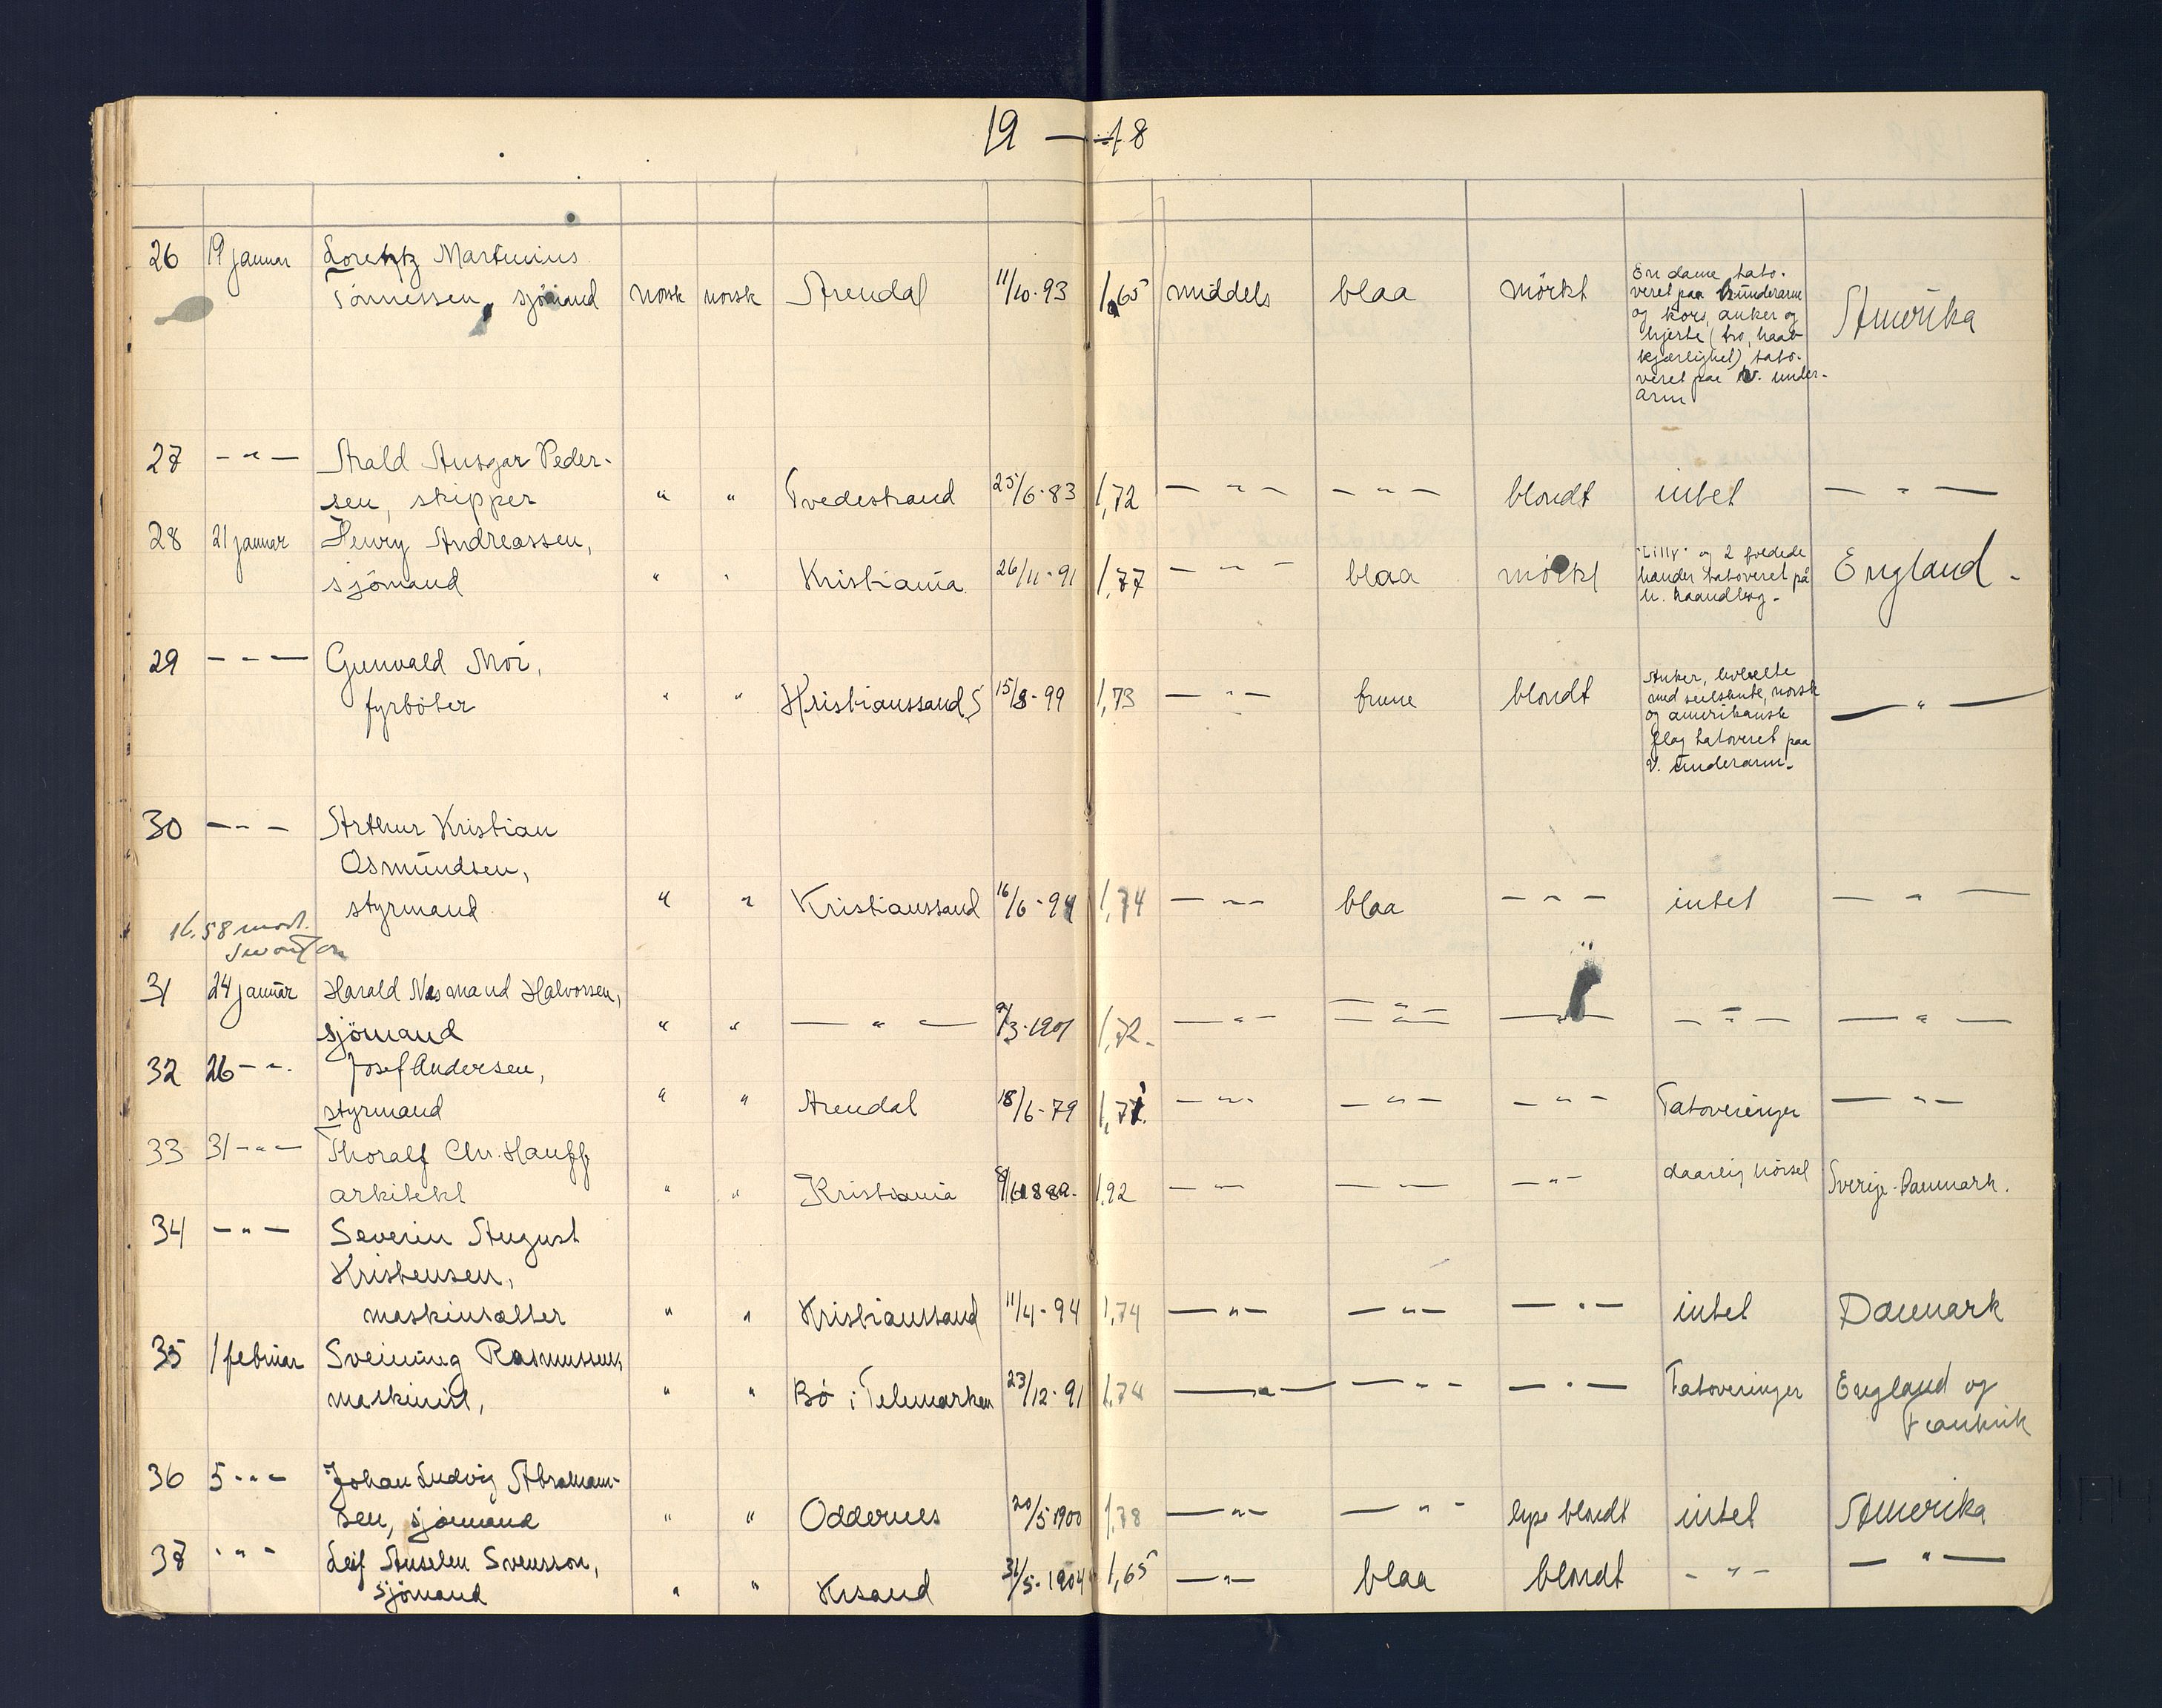 19 — 18
26 19 januar Loretz Martinius
Tönnessen, sjömand norsk norsk Arendal 11/10-93 1,65 middels blaa mörkt Amerika
En dame tato-
veret paa h. underarm
og kors, anker og
hjerte (tro, haab
kjærlighet) tato-
veret paa v. under-
arm
27 — " — Arald Ansgar Peder-
sen, skipper " " Tvedestrand 25/6-83 1,72 — " — — " — blondt intet — " —
28 21 januar Henry Andreassen,
sjömand " " Kristiania 26/11-91 1,77 — " — blaa mörkt England -
"Lilly" og 2 foldede
hænder tatoveret på
h. haandbag -
29 — " — Gunvald Moi,
fyrböter " " Kristianssand S 15/8-99 1,73 — " — brune blondt — " —
Anker, livbelte
med seilskute, norsk
og amerikansk
flag tatoveret paa
V. underarm -
30 — " — Arthur Kristian
Osmundsen,
styrmand " " Kristianssand 16/6-94 1,74 — " — blaa — " — intet — " —
16.58 mot.
31 24 januar Harald Næsmand Halvorsen,
sjömand " " — " — 9/3-1901 1,72- — " — — " — — " — — " — — " —
32 26 — " — Josef Andersen,
styrmand " " Arendal 18/6-79 1,71 — " — — " — — " — Tatoveringer — " —
33 31 — " — Thoralf Chr. Hauff
arkitekt " " Kristiania 1,92 — " — — " — — " — daarlig hörsel Sverige-Danmark.
34 — " — Severin August
Kristensen,
maskinsætter " " Kristianssand 11/4-94 1,74 — " — — " — — " — intet Danmark
35 1 februar Sveining Rasmussen,
maskinist, " " Bö i Telemarken 23/12-91 1,74 — " — — " — — " — Tatoveringer England og
Frankrik
36 5 — " — Johan Ludvig Abraham-
sen, sjömand " " Oddernes 20/5 1900 1,78 — " — — " — lyse blondt intet Amerika
37 — " — Leif Anselm Svensson,
sjömand " " Krsand 31/5-1904 1,65 — " — blaa blondt — " — — " —